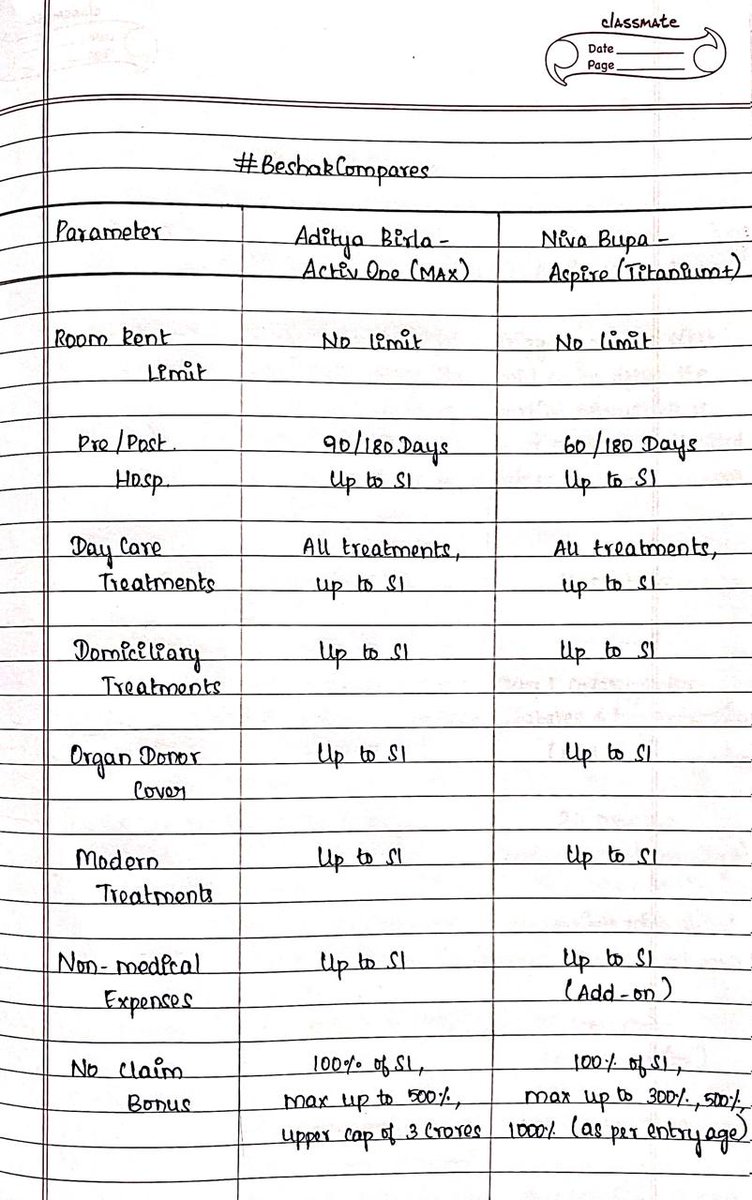 classmate
Date
Page
#BeshakCompares
Parameter
Aditya Birla -
Activ One (MAX)
Niva Bupa -
Aspire (Titanium+)
Room Rent
Limit
No limit
No limit
Pre/Post.
Hosp.
90/180 Days
Up to SI
60/180 Days
Up to SI
Day Care
Treatments
All treatments,
up to SI
All treatments,
up to SI
Domiciliary
Treatments
Up to SI
Up to SI
Organ Donor
Cover
Up to SI
Up to SI
Modern
Treatments
Up to SI
Up to SI
Non-medical
Expenses
Up to SI
Up to SI
(Add-on)
No Claim
Bonus
100% of SI,
max up to 500%,
upper cap of 3 Crores
100% of SI,
max up to 300%, 500%,
1000% (as per entry age)